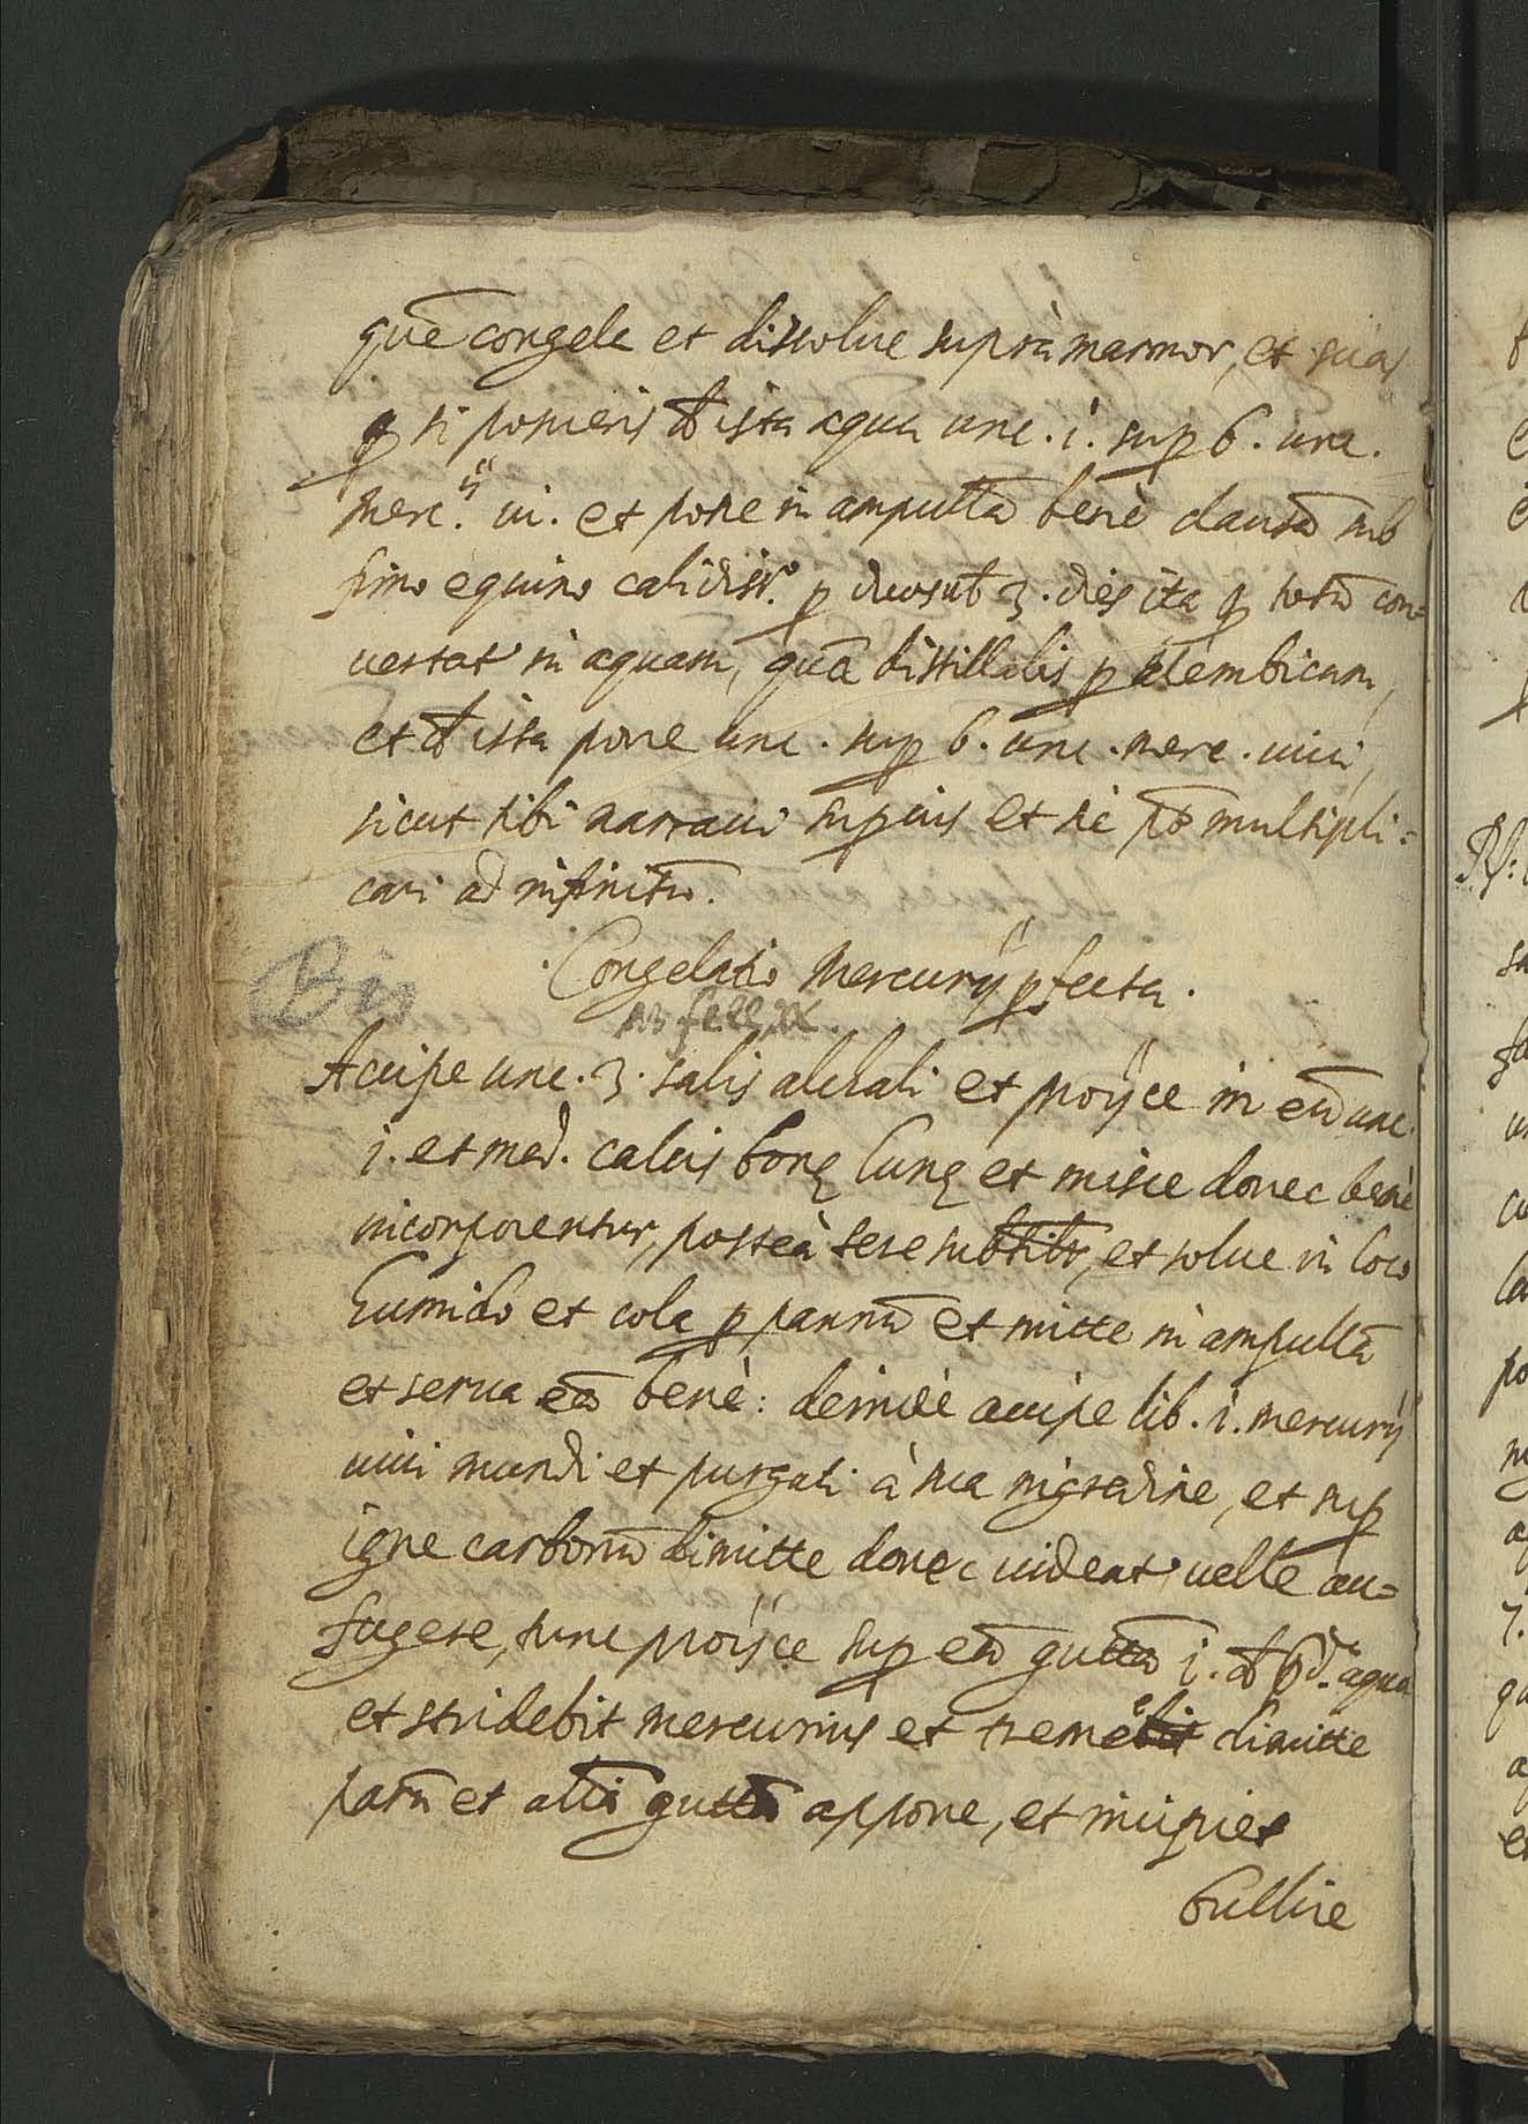 quē congela et dissolue suprà marmor, et scias
ꝙ si posueris đ ista aqua unc. i. suꝑ 6. unc.
merc.ii ui. et pone in ampullā benè clausā sub
fimo equino calidiss.o ꝑ duos ul̄ 3. dies ita ꝙ totū con=
uertat' in aquam, quā distillabis ꝑ alembicum,
et đ ista pone unc. suꝑ 6. unc. merc. uiui,
sicut tibi narraui suꝑius et sic pōt multipli=
cari ad infinitū.
Congelatio Mercurij ꝑfecta.
Bis
Accipe unc. 3. salis alchali et proijce in eū unc.
i. et med. calcis bonę lunę et misce donec benè
incorporentur, posteà tere subtilr̄, et solue in loco
humido et cola ꝑ pannū et mitte in ampullā
et serua eā benè: deindè accipe lib. i. mercurij
uiui mundi et purgati à sua nigredine, et suꝑ
igne carbonū dimitte donec uideat' uelle au=
fugere, tunc proijce suꝑ eū guttā i. đ p.d.ta aqua
et stridebit mercurius et tremet dimitte
parū et aliā guttā appone, et incipiet
bullire